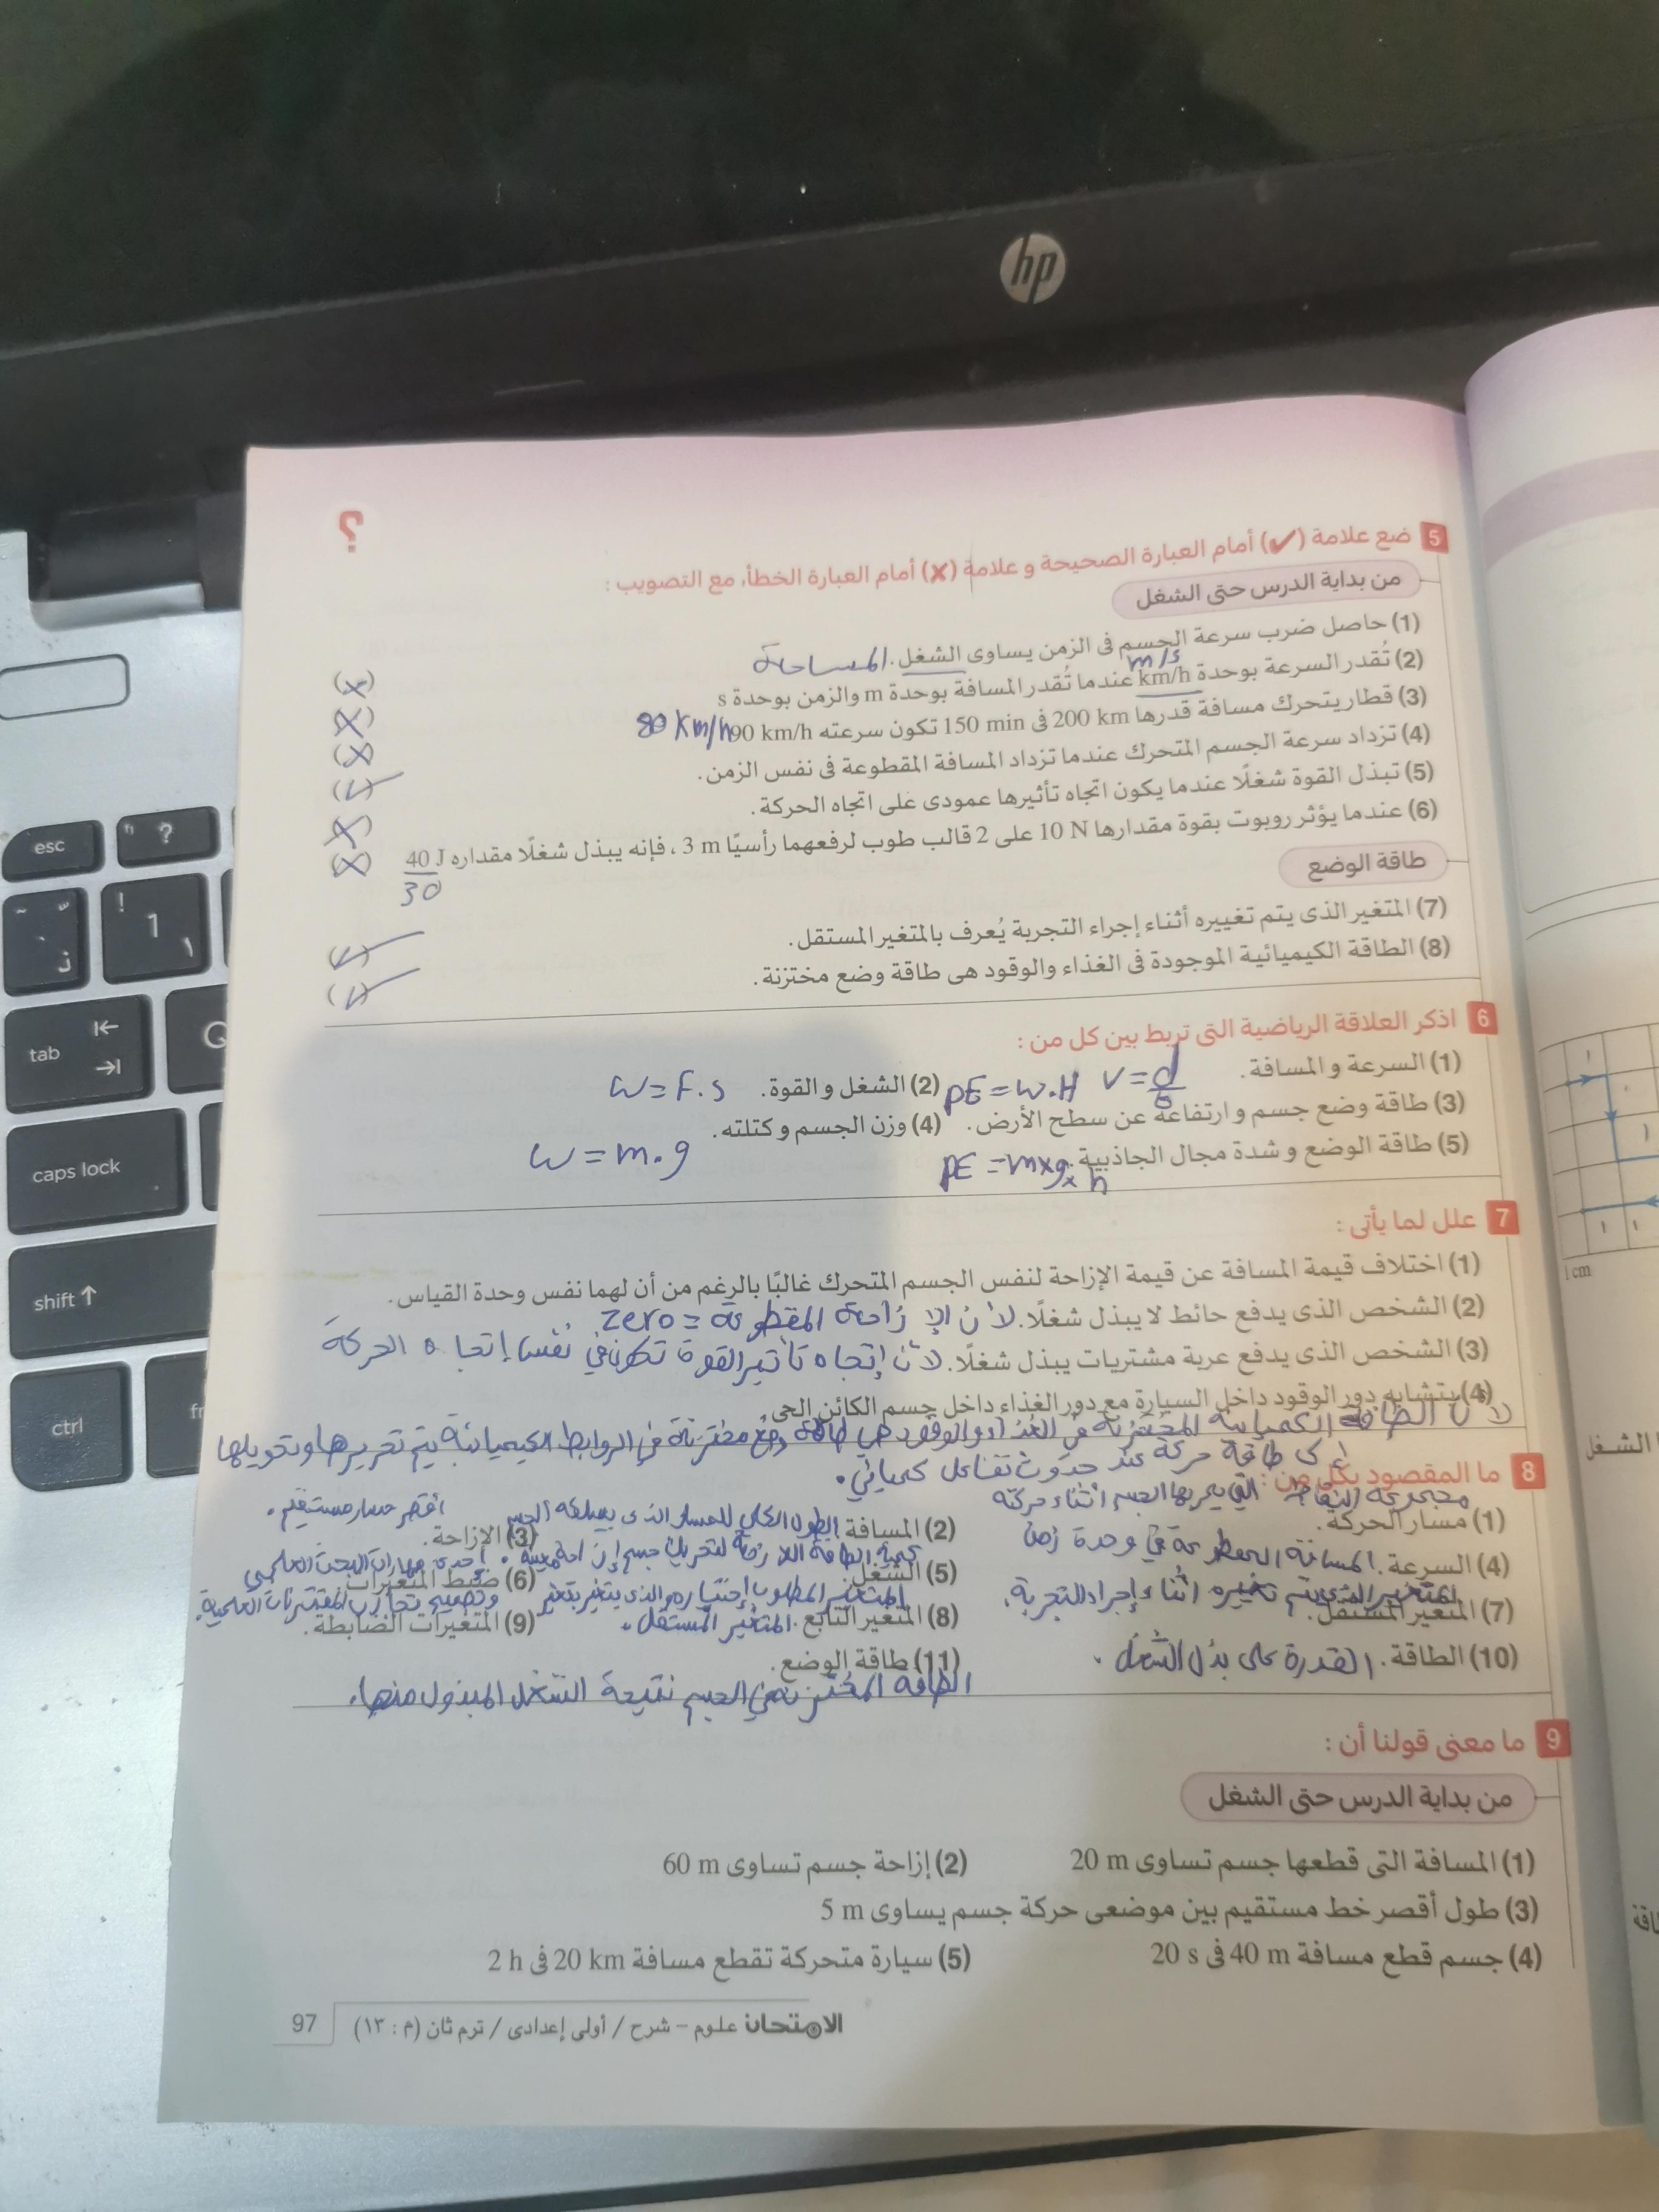 hp
؟
5 ضع علامة (✔) أمام العبارة الصحيحة وعلامة (✘) أمام العبارة الخطأ، مع التصويب :
من بداية الدرس حتى الشغل
(1) حاصل ضرب سرعة الجسم فى الزمن يساوى الشغل. المساحة (✗)
m/s
(2) تُقدر السرعة بوحدة km/h عندما تُقدر المسافة بوحدة m والزمن بوحدة s (✗)
(3) قطار يتحرك مسافة قدرها 200 km فى 150 min تكون سرعته 90 km/h 80 km/h (✗)
(4) تزداد سرعة الجسم المتحرك عندما تزداد المسافة المقطوعة فى نفس الزمن. (✓)
(5) تبذل القوة شغلًا عندما يكون اتجاه تأثيرها عمودى على اتجاه الحركة. (✗)
(6) عندما يؤثر روبوت بقوة مقدارها 10 N على 2 قالب طوب لرفعهما رأسيًا 3 m ، فإنه يبذل شغلًا مقداره 40 J (✗)
30
طاقة الوضع
(7) المتغير الذى يتم تغييره أثناء إجراء التجربة يُعرف بالمتغير المستقل. (✓)
(8) الطاقة الكيميائية الموجودة فى الغذاء والوقود هى طاقة وضع مختزنة. (✓)
6 اذكر العلاقة الرياضية التى تربط بين كل من :
(1) السرعة والمسافة. V = d/t (2) الشغل والقوة. W = F.S
(3) طاقة وضع جسم وارتفاعه عن سطح الأرض. PE = W.H (4) وزن الجسم وكتلته. W = m.g
(5) طاقة الوضع وشدة مجال الجاذبية. PE = m×g×h
7 علل لما يأتى :
(1) اختلاف قيمة المسافة عن قيمة الإزاحة لنفس الجسم المتحرك غالبًا بالرغم من أن لهما نفس وحدة القياس.
(2) الشخص الذى يدفع حائط لا يبذل شغلًا. لأن الإزاحة المقطوعة = zero
(3) الشخص الذى يدفع عربة مشتريات يبذل شغلًا. لأن إتجاه تأثير القوة تكون في نفس إتجاه الحركة
(4) يتشابه دور الوقود داخل السيارة مع دور الغذاء داخل جسم الكائن الحى.
لأن الطاقة الكيميائية المختزنة في الغذاء والوقود هي طاقة وضع مختزنة في الروابط الكيميائية يتم تحريرها وتحويلها
إلى طاقة حركة عند حدوث تفاعل كميائي.
8 ما المقصود بكل من :
مجموعة النقاط التي يمر بها الجسم أثناء حركته
(1) مسار الحركة. (2) المسافة. الطول الكلي للمسار الذى يسلكه الجسم (3) الإزاحة. أقصر مسار مستقيم.
(4) السرعة. المسافة المقطوعة في وحدة زمن (5) الشغل. كمية الطاقة اللازمة لتحريك جسم إزاحة معينة. (6) ضبط المتغيرات. إحدى مهارات البحث العلمي
وتصميم تجارب
(7) المتغير المستقل. المتغير الذى يتم تغييره أثناء إجراء التجربة. (8) المتغير التابع. المتغير المطلوب إختباره والذى يتغير بتغير المتغير المستقل. (9) المتغيرات الضابطة.
(10) الطاقة. القدرة على بذل الشغل. (11) طاقة الوضع.
الطاقة المختزنة في الجسم نتيجة الشغل المبذول منها.
9 ما معنى قولنا أن :
من بداية الدرس حتى الشغل
(1) المسافة التى قطعها جسم تساوى 20 m (2) إزاحة جسم تساوى 60 m
(3) طول أقصر خط مستقيم بين موضعى حركة جسم يساوى 5 m
(4) جسم قطع مسافة 40 m فى 20 s (5) سيارة متحركة تقطع مسافة 20 km فى 2 h
الامتحان علوم – شرح / أولى إعدادى / ترم ثان (م : ١٣) 97
esc
tab
caps lock
shift
ctrl
1 cm
الشغل